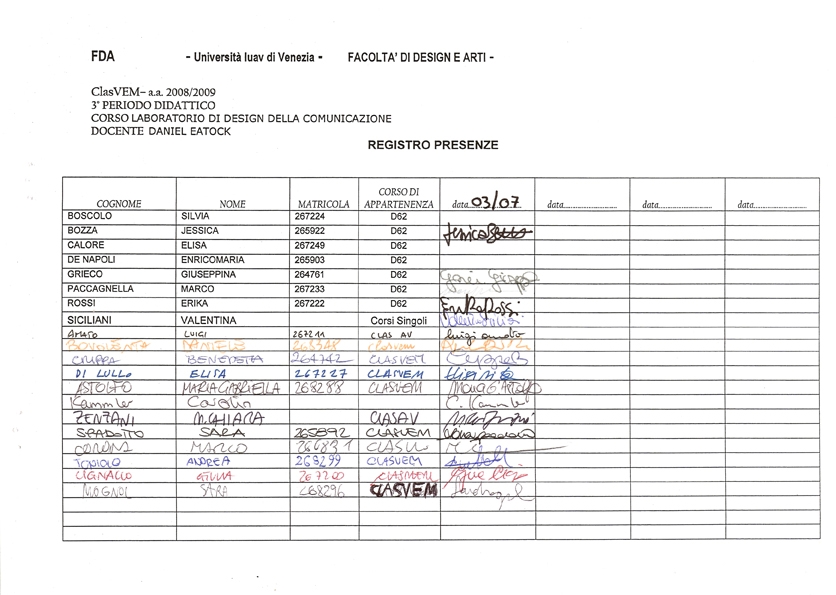 FDA - Università Iuav di Venezia - FACOLTA' DI DESIGN E ARTI -
ClasVEM– a.a. 2008/2009
3° PERIODO DIDATTICO
CORSO LABORATORIO DI DESIGN DELLA COMUNICAZIONE
DOCENTE DANIEL EATOCK
REGISTRO PRESENZE
COGNOME NOME MATRICOLA CORSO DI APPARTENENZA data...03/07... data........................ data........................ data........................
BOSCOLO SILVIA 267224 D62
BOZZA JESSICA 265922 D62
CALORE ELISA 267249 D62
DE NAPOLI ENRICOMARIA 265903 D62
GRIECO GIUSEPPINA 264761 D62
PACCAGNELLA MARCO 267233 D62
ROSSI ERIKA 267222 D62 Erika Rossi
SICILIANI VALENTINA Corsi Singoli
AMATO LUIGI 267211 CLAS AV luigi amato
DANIELE
BENEDETTA 264742 CLASVEM
DI LULLO ELISA 267227 CLASVEM
ASTOLFO MARIA GABRIELLA 268288 CLASVEM
Kammler Carolin C. Kammler
ZENTANI M.CHIARA CLASAV
SPADOTTO SARA 265892 CLASVEM
MARCO
ANDREA 268299 CLASVEM
GIULIA 267200 CLASVEM
MOGNOL SARA 268296 CLASVEM